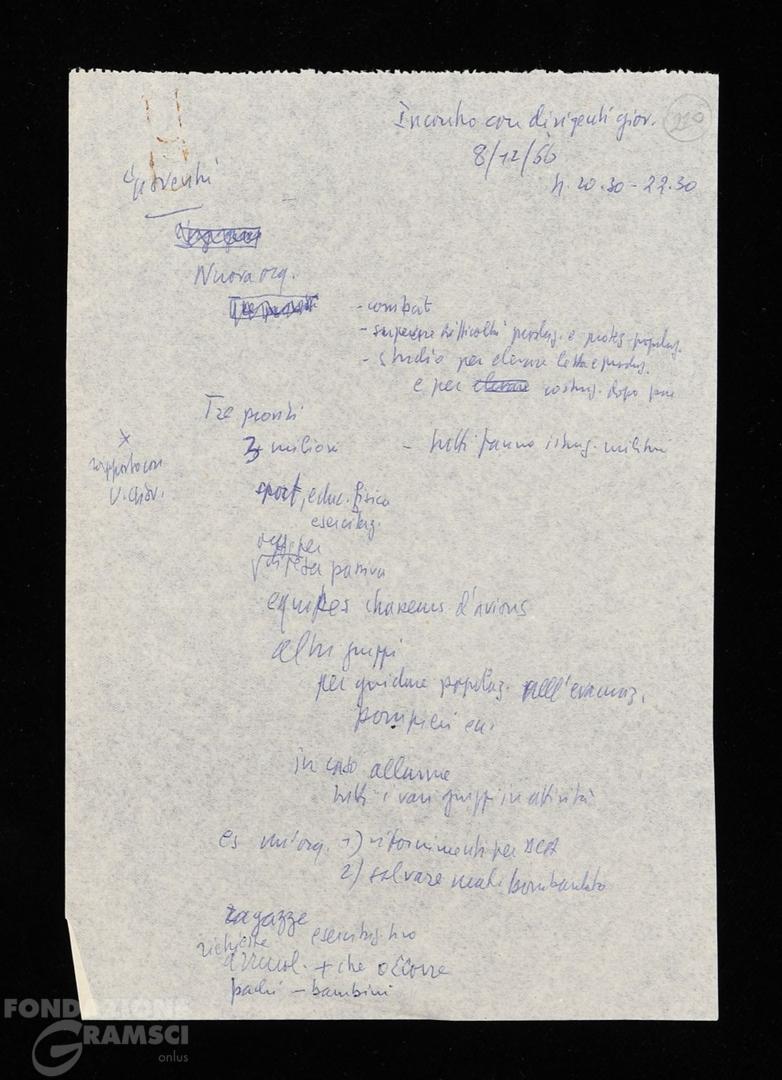 Incontro con dirigenti giov.
220
8/12/66
h. 20.30 - 22.30
Gioventù
Nuova org.
- combat
- superare difficoltà produz. e protez. popolaz.
- studio per elevare lotta e produz.
e per elevare costruz. dopo
Tre pronti
3 milioni - tutti fanno istruz. militari
x
rapporto con
U. Giov.
sport, educ. fisica
esercitaz.
per
difesa passiva
equipes chasseurs d'avions
altri gruppi
per guidare popolaz. nell'evacuaz.
pompieri ecc.
in caso allarme
tutti i vari gruppi in attività
es un'org. 1) rifornimenti per DCA
2) salvare bombardato
ragazze
richieste esercitaz. tiro
arruol. + che occorre
padri - bambini
FONDAZIONE
GRAMSCI
onlus